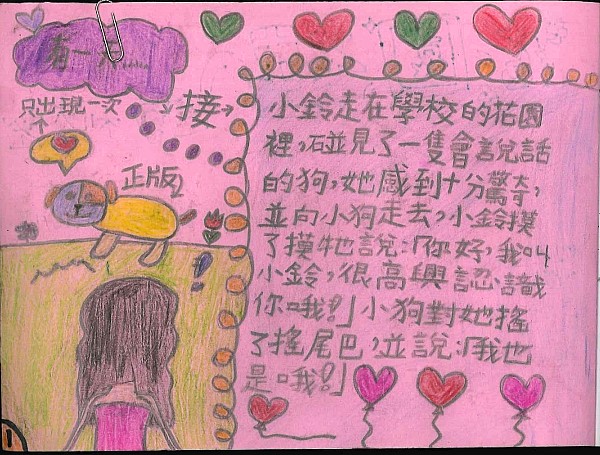 有一天
只出現一次
接→
正版
小鈴走在學校的花園
裡，碰見了一隻會說話
的狗，她感到十分驚奇，
並向小狗走去，小鈴摸
了摸牠說：「你好，我叫
小鈴，很高興認識
你哦！」小狗對她搖
了搖尾巴，並說：「我也
是哦！」
1